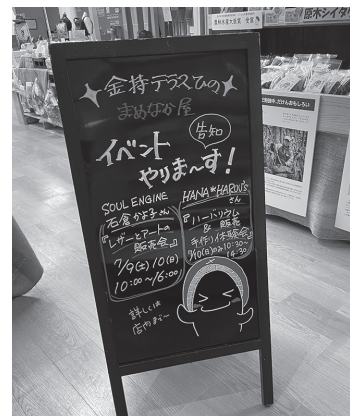 金持テラスひの
まめなか屋
告知
イベント
やりま〜す！
SOUL ENGINE
石倉かよ子さん
『レザーとアートの
販売会』
7/9(土) 10(日)
10:00〜16:00
HANA*HAROU's
さん
『ハーバリウム
& 販売
手作り体験会』
7/10(日)のみ10:30〜
14:30
詳しくは
店内まで〜
原木シイタケ